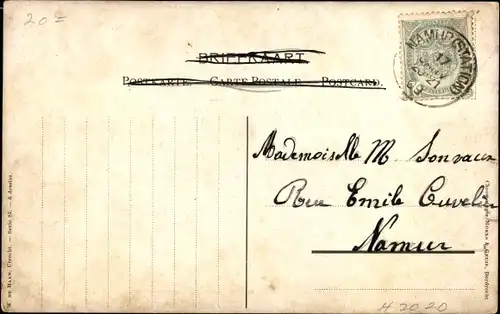 20=
BRIEFKAART
POSTKARTE. - CARTE POSTALE. - POSTCARD.
NAMUR (STATION)
17
09
Mademoiselle M. Sonvaux
Rue Emile Cuvelier
Namur
H 2020
W. DE HAAN, Utrecht. — Serie 85. — 6 dessins.
Dordrecht.